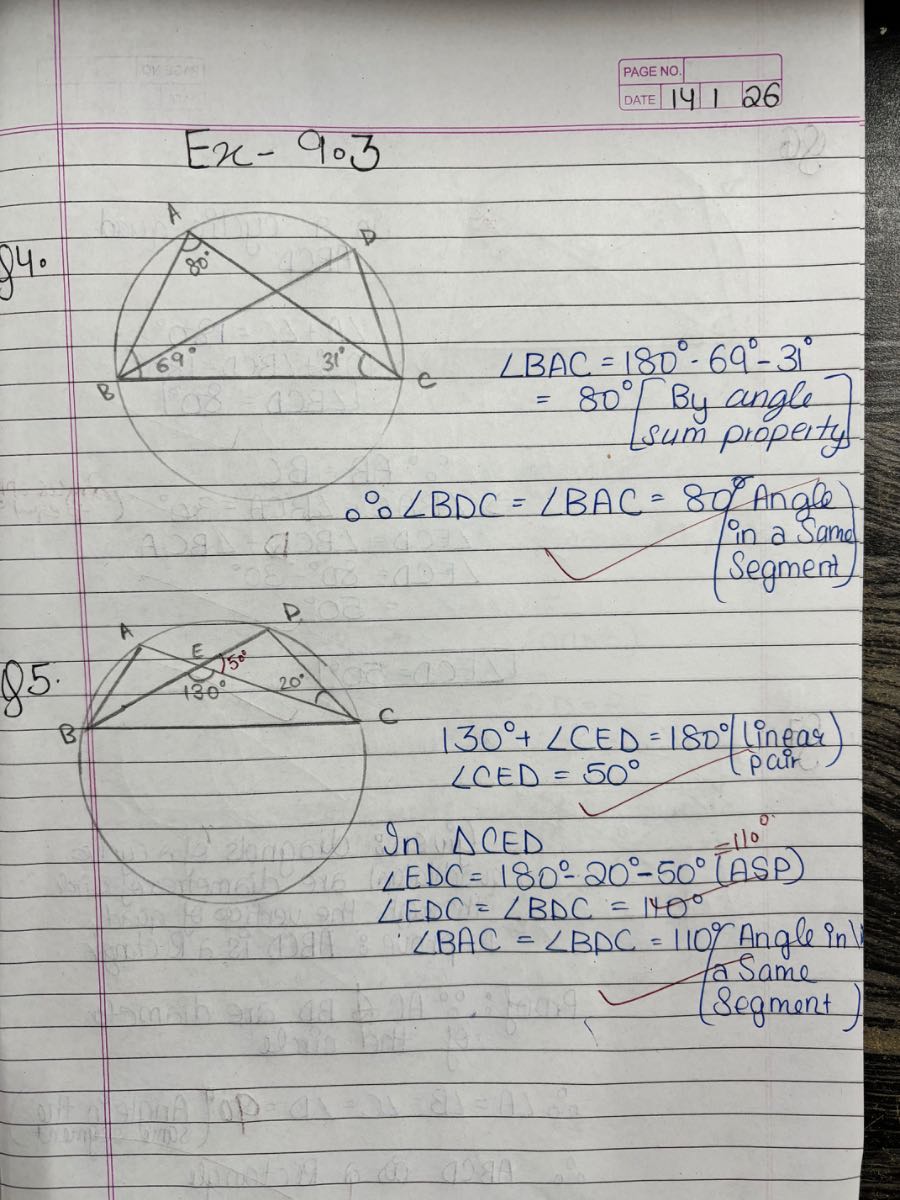 PAGE NO.
DATE 14 1 26
Ex - 9.3
Q4.
A
D
80°
69°
31°
B
C
∠BAC = 180° - 69° - 31°
= 80° [By angle
sum property]
∴ ∠BDC = ∠BAC = 80° (Angle
in a Same
Segment)
Q5.
A
D
E
50°
130°
20°
B
C
130° + ∠CED = 180° (linear
pair)
∠CED = 50°
In △CED
= 110°
∠EDC = 180° - 20° - 50° (ASP)
∠EDC = ∠BDC = 140°
∠BAC = ∠BDC = 110° (Angle in
a Same
Segment)